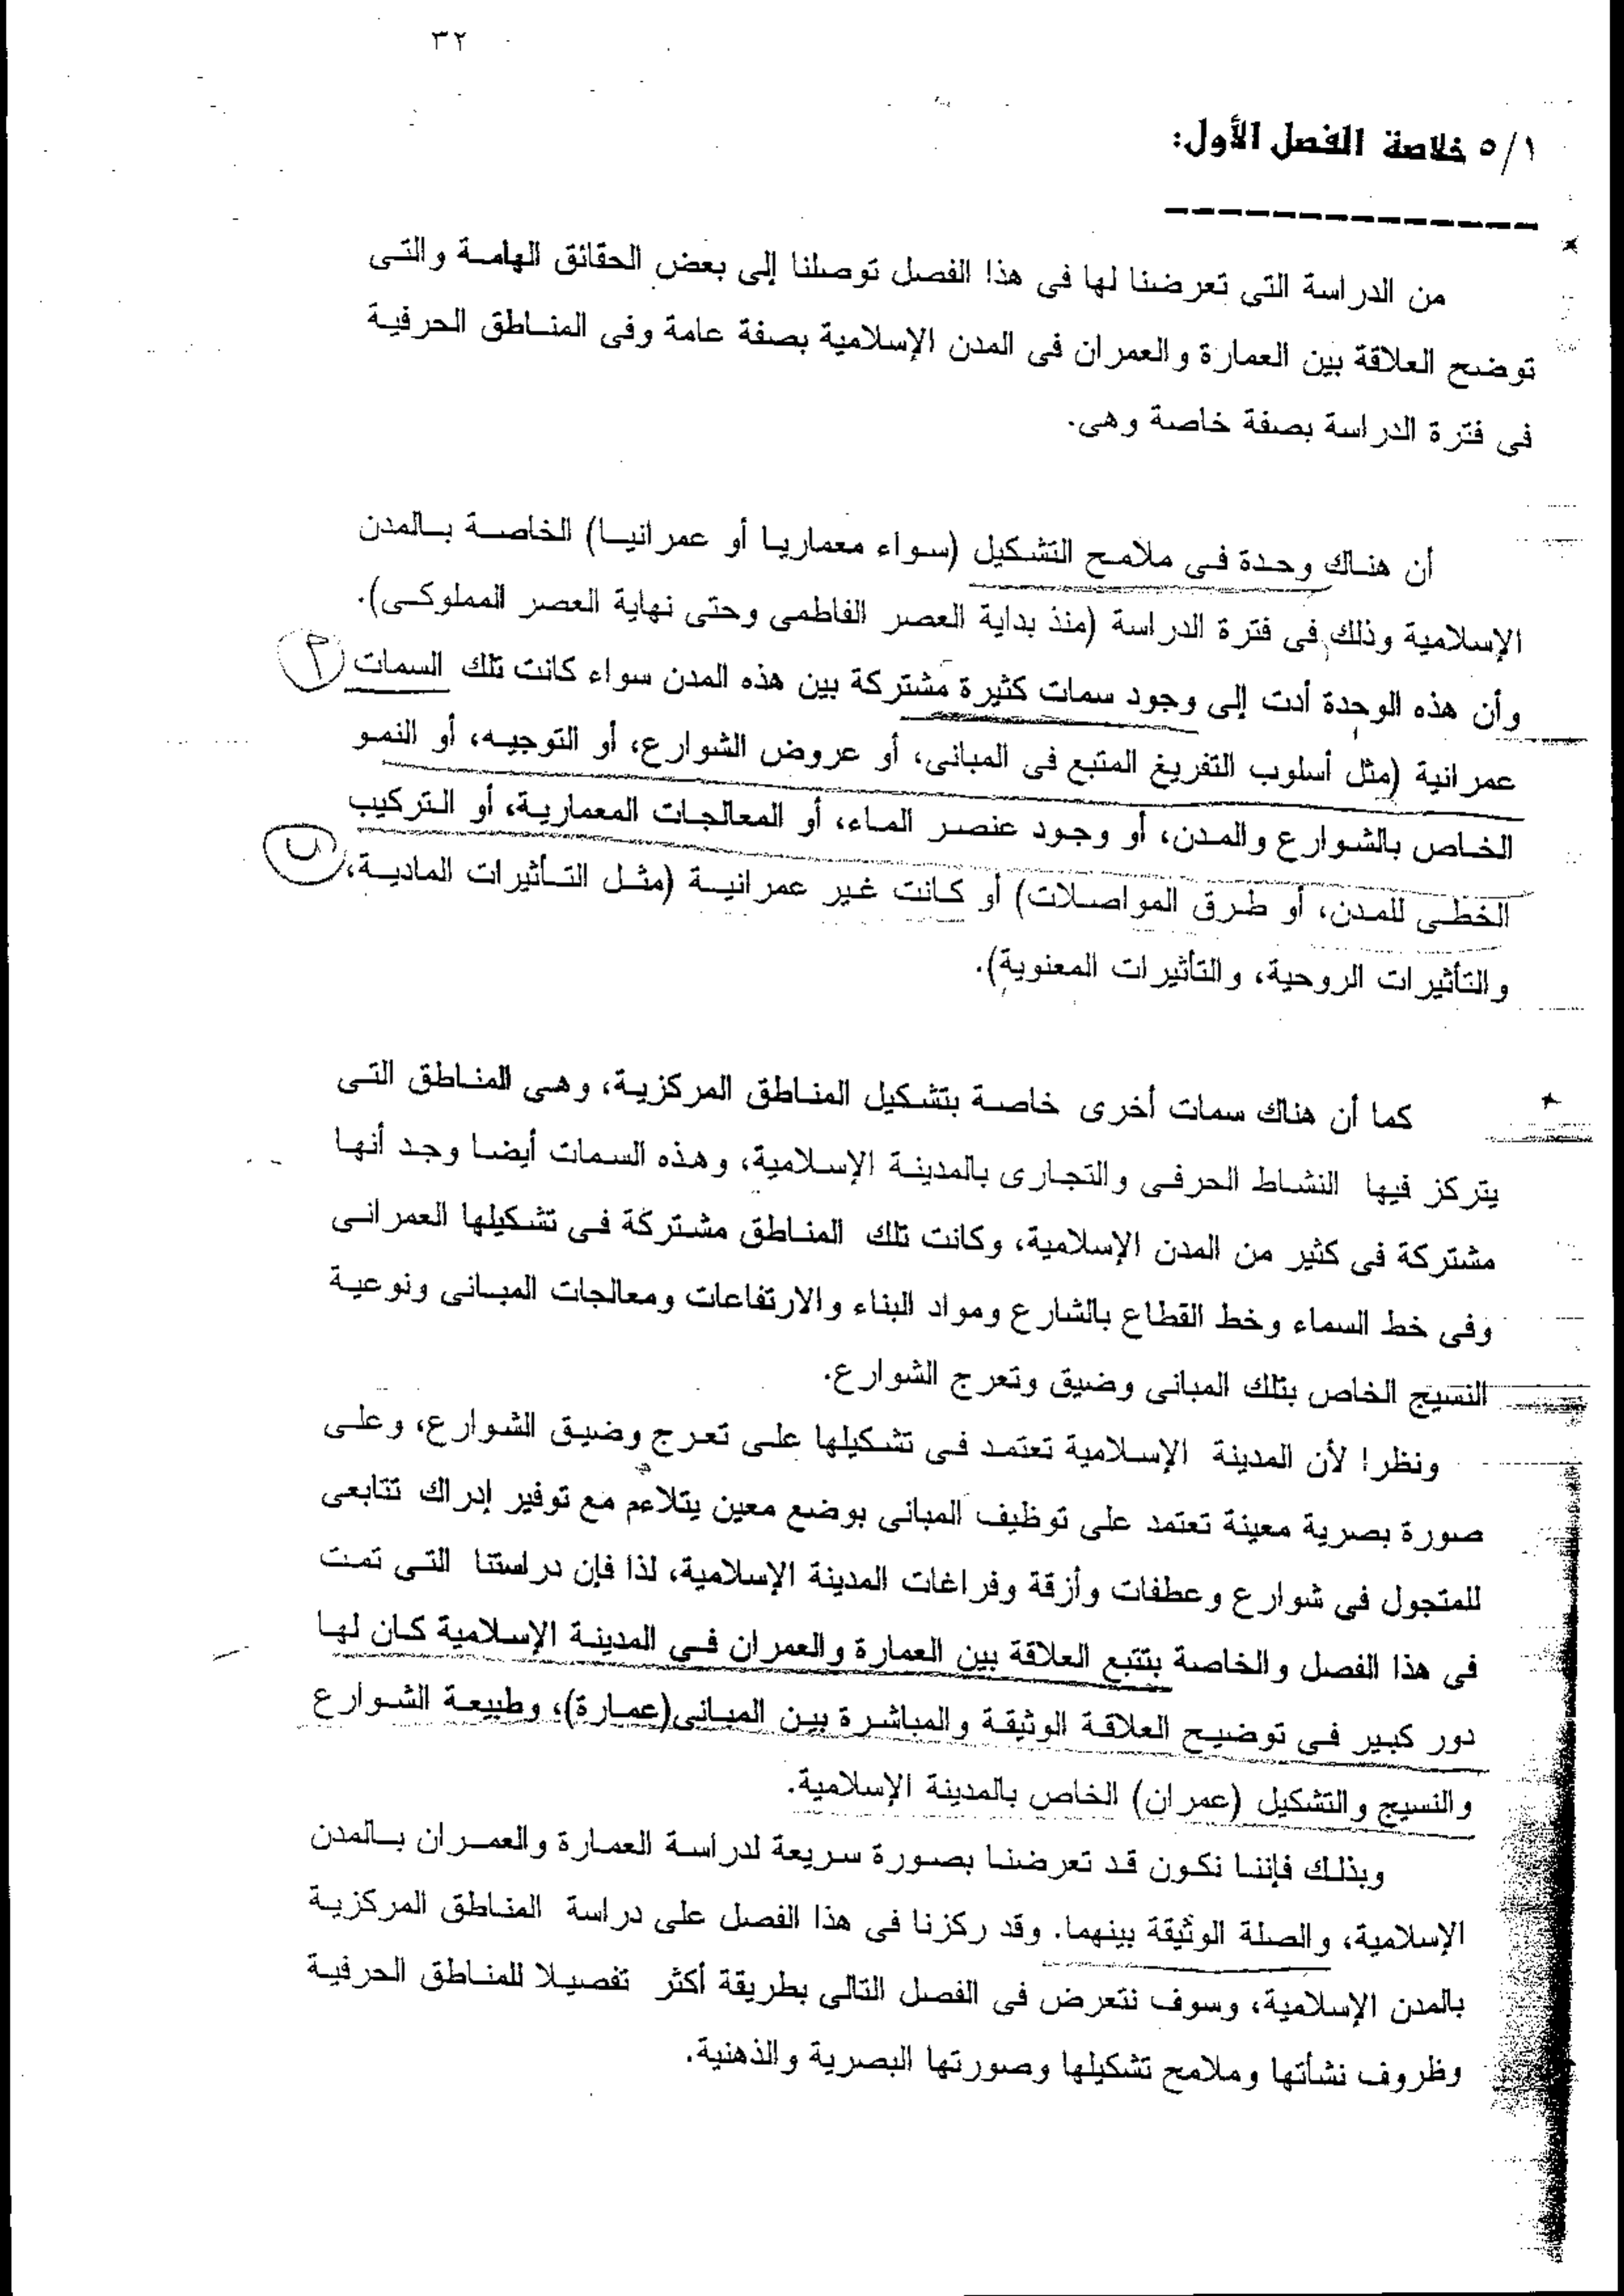 ٣٢
٥/١ خلاصة الفصل الأول:
من الدراسة التى تعرضنا لها فى هذا الفصل توصلنا إلى بعض الحقائق الهامة والتى
توضح العلاقة بين العمارة والعمران فى المدن الإسلامية بصفة عامة وفى المناطق الحرفية
فى فترة الدراسة بصفة خاصة وهى.
أن هناك وحدة فى ملامح التشكيل (سواء معماريا أو عمرانيا) الخاصة بالمدن
الإسلامية وذلك فى فترة الدراسة (منذ بداية العصر الفاطمى وحتى نهاية العصر المملوكى).
وأن هذه الوحدة أدت إلى وجود سمات كثيرة مشتركة بين هذه المدن سواء كانت تلك السمات
عمرانية (مثل أسلوب التفريغ المتبع فى المبانى، أو عروض الشوارع، أو التوجيه، أو النمو
الخاص بالشوارع والمدن، أو وجود عنصر الماء، أو المعالجات المعمارية، أو التركيب
الخطى للمدن، أو طرق المواصلات) أو كانت غير عمرانية (مثل التأثيرات المادية،
والتأثيرات الروحية، والتأثيرات المعنوية).
كما أن هناك سمات أخرى خاصة بتشكيل المناطق المركزية، وهى المناطق التى
يتركز فيها النشاط الحرفى والتجارى بالمدينة الإسلامية، وهذه السمات أيضا وجد أنها
مشتركة فى كثير من المدن الإسلامية، وكانت تلك المناطق مشتركة فى تشكيلها العمرانى
وفى خط السماء وخط القطاع بالشارع ومواد البناء والارتفاعات ومعالجات المبانى ونوعية
النسيج الخاص بتلك المبانى وضيق وتعرج الشوارع.
ونظرا لأن المدينة الإسلامية تعتمد فى تشكيلها على تعرج وضيق الشوارع، وعلى
صورة بصرية معينة تعتمد على توظيف المبانى بوضع معين يتلاءم مع توفير إدراك تتابعى
للمتجول فى شوارع وعطفات وأزقة وفراغات المدينة الإسلامية، لذا فإن دراستنا التى تمت
فى هذا الفصل والخاصة بتتبع العلاقة بين العمارة والعمران فى المدينة الإسلامية كان لها
دور كبير فى توضيح العلاقة الوثيقة والمباشرة بين المبانى(عمارة)، وطبيعة الشوارع
والنسيج والتشكيل (عمران) الخاص بالمدينة الإسلامية.
وبذلك فإننا نكون قد تعرضنا بصورة سريعة لدراسة العمارة والعمران بالمدن
الإسلامية، والصلة الوثيقة بينهما. وقد ركزنا فى هذا الفصل على دراسة المناطق المركزية
بالمدن الإسلامية، وسوف نتعرض فى الفصل التالى بطريقة أكثر تفصيلا للمناطق الحرفية
وظروف نشأتها وملامح تشكيلها وصورتها البصرية والذهنية.